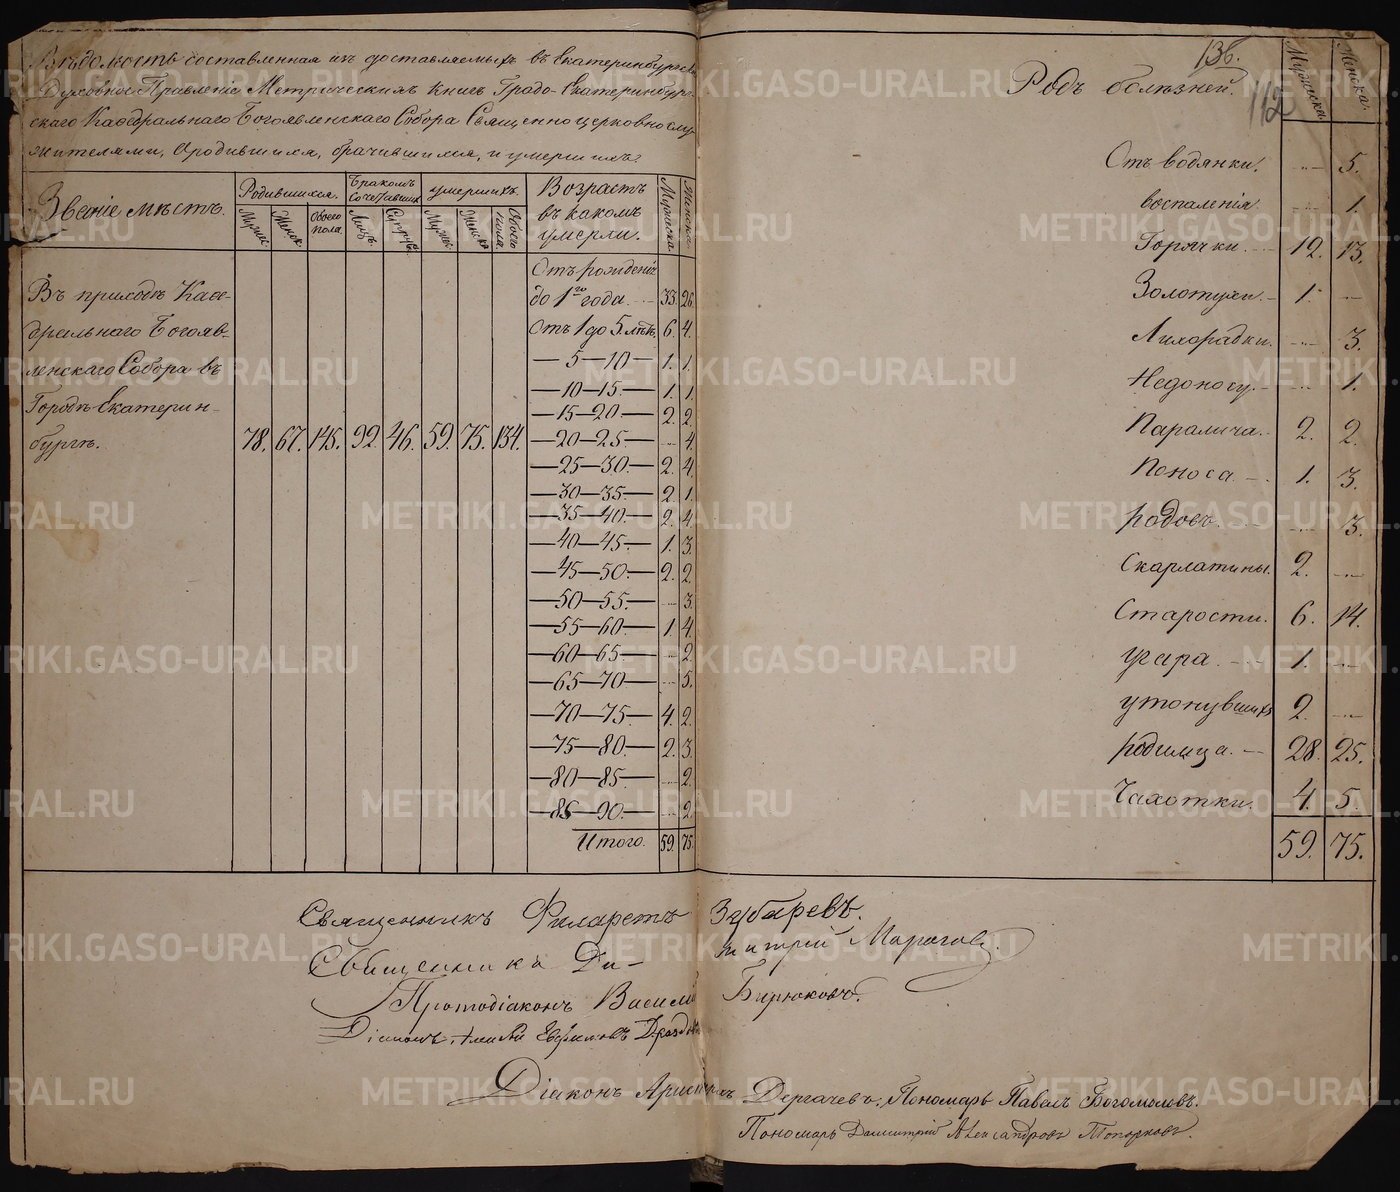 Вѣдомость составленная изъ доставляемыхъ въ Екатеринбургское
Духовное Правленіе Метрическихъ книгъ Градо-Екатеринбург-
скаго Каѳедральнаго Богоявленскаго Собора Священноцерковнослу-
жителями, о родившихся, брачившихся, и умершихъ.
Званіе мѣстъ.
Родившихся.
Бракомъ Сочетавшихся
умершихъ.
Возрастъ
въ какомъ
умерли.
Мужеска.
Женска.
Мужес.
Женск.
Обоего пола.
Лицъ.
Супруж.
Мужес.
Женска.
Обоего пола.
Въ приходѣ Каѳе-
дральнаго Богояв-
ленскаго Собора въ
Городѣ Екатерин-
бургѣ.
78. 67. 145. 92. 46. 59. 75. 134.
Отъ рожденія
до 1го года 33. 26.
Отъ 1 до 5 лѣтъ. 6. 4.
— 5—10 — 1. 1.
—10—15.— 1. 1.
—15—20.— 2. 2.
—20—25.— 4.
—25—30.— 2. 4.
—30—35.— 2. 1.
—35—40.— 2. 4.
—40—45.— 1. 3.
—45—50.— 2. 2.
—50—55.— 3.
—55—60.— 1. 4.
—60—65.— 2.
—65—70.— 5.
—70—75.— 4. 2.
—75—80.— 2. 3.
—80—85.— 2.
—85—90.— 2.
Итого. 59. 75.
136.
112
Родъ болѣзней.
Мужеска.
Женска.
Отъ водянки. 5.
воспаленія 1.
Горячки. 12. 13.
Золотухи. 1.
Лихорадки. 3.
Недоносу. 1.
Паралича. 2. 2.
Поноса. 1. 3.
родовъ. 3.
Скарлатины. 2.
Старости. 6. 14.
угара. 1.
утонувшихъ 2.
родимца. 28. 25.
Чахотки. 4. 5.
59. 75.
Священникъ Филаретъ Зубаревъ.
Священникъ Ди-митрій
Протодіаконъ Василій Бирюковъ.
Діаконъ
Діаконъ Дергачевъ. Пономарь Павелъ Богомоловъ.
Пономарь Димитрій Александровъ Топорковъ.
METRIKI.GASO-URAL.RU